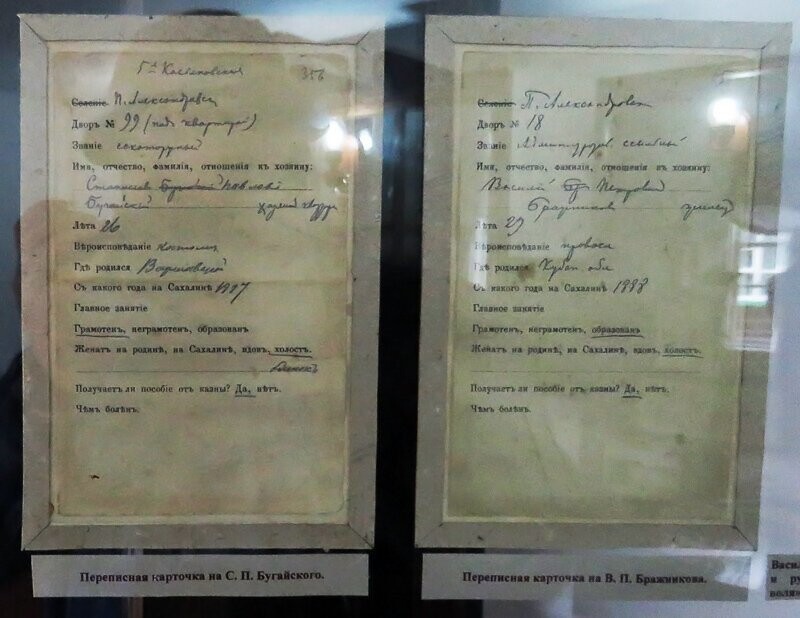 356
Селеніе П. Александровск
Дворъ № 99 (надз. квартира)
Званіе
Имя, отчество, фамилія, отношенія къ хозяину:
Павловъ
Бугайскій
Лѣта 26
Вѣроисповѣданіе
Гдѣ родился Варшавской
Съ какого года на Сахалинѣ 1887
Главное занятіе
Грамотенъ, неграмотенъ, образованъ
Женатъ на родинѣ, на Сахалинѣ, вдовъ, холостъ.
Получаетъ ли пособіе отъ казны? Да, нѣтъ.
Чѣмъ болѣнъ.
Переписная карточка на С. П. Бугайского.
Селеніе П. Александровск
Дворъ № 18
Званіе Административ. ссыльный
Имя, отчество, фамилія, отношенія къ хозяину:
Василій Петровичъ
Бражников
Лѣта 29
Вѣроисповѣданіе правосл
Гдѣ родился Кубан обл
Съ какого года на Сахалинѣ 1888
Главное занятіе
Грамотенъ, неграмотенъ, образованъ
Женатъ на родинѣ, на Сахалинѣ, вдовъ, холостъ.
Получаетъ ли пособіе отъ казны? Да, нѣтъ.
Чѣмъ болѣнъ.
Переписная карточка на В. П. Бражникова.